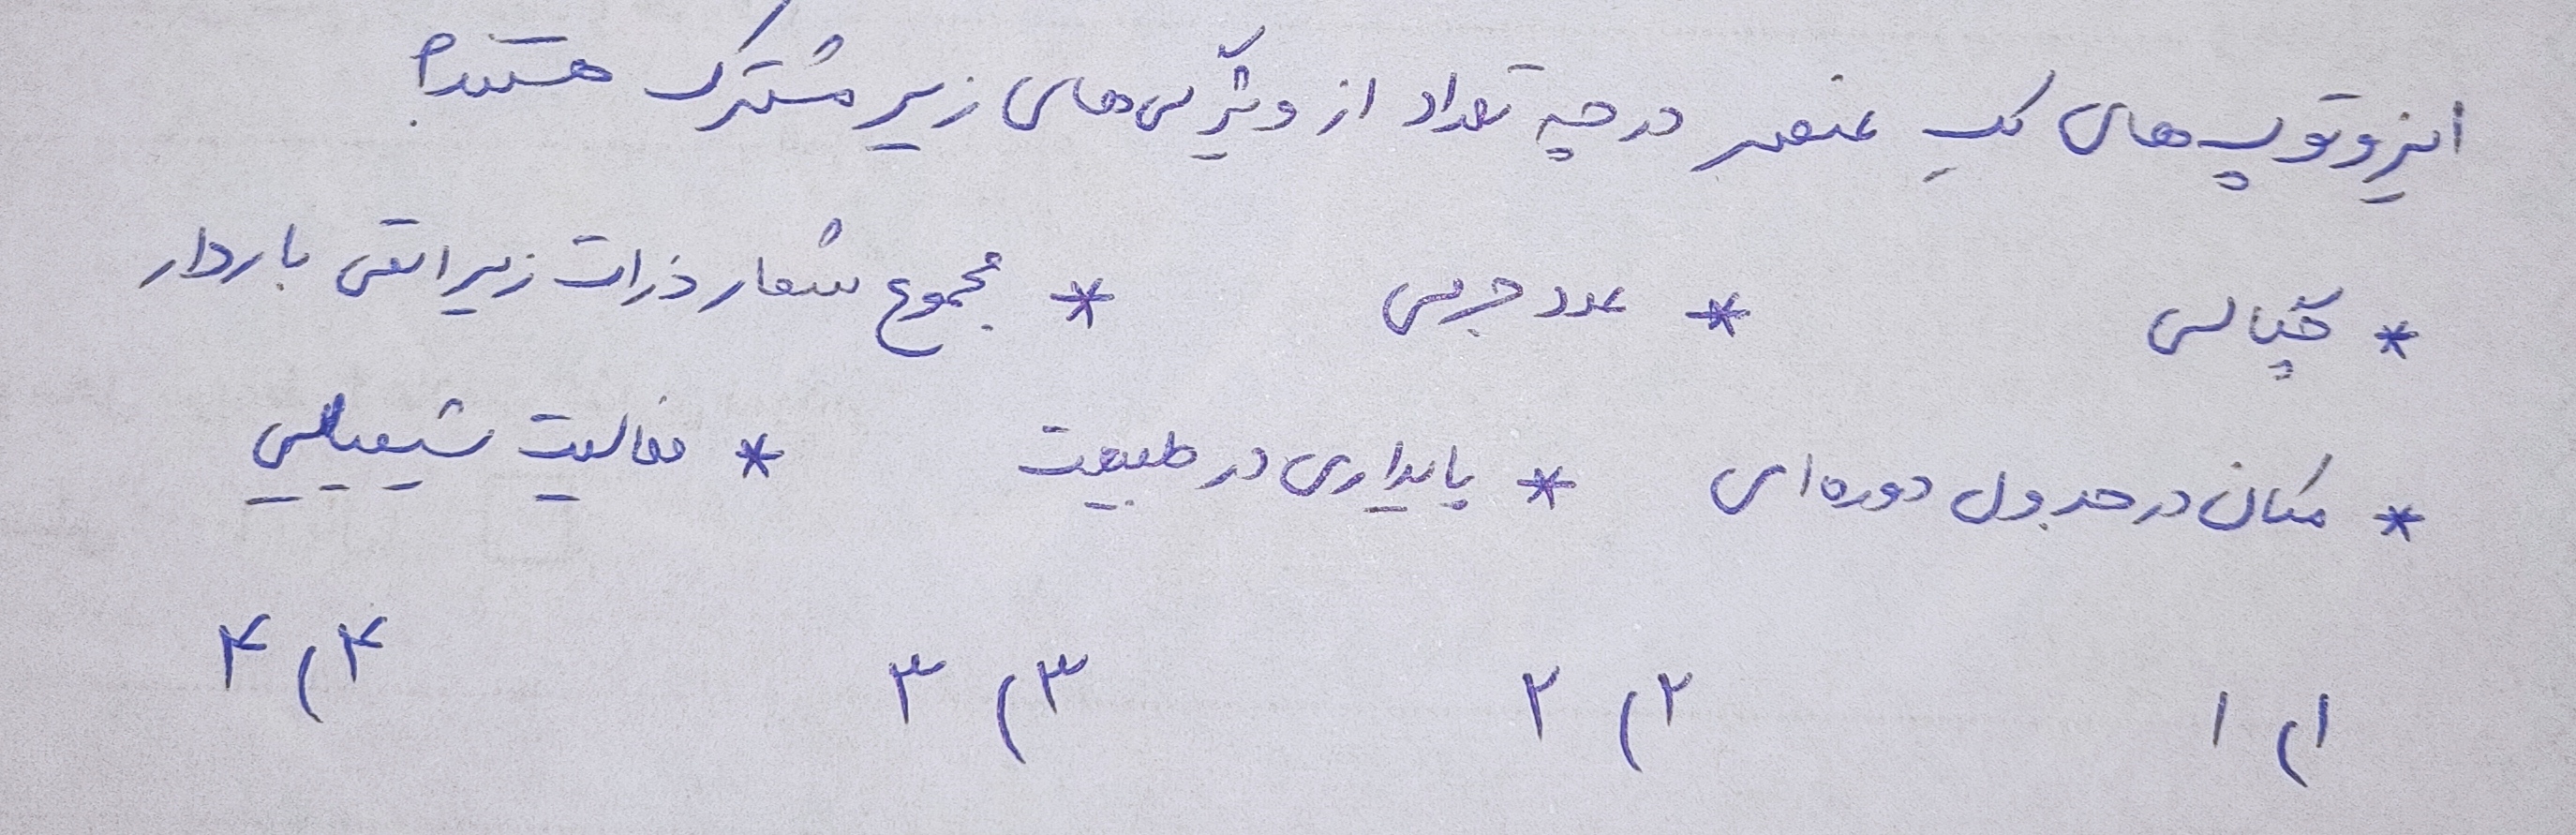 ایزوتوپ‌های یک عنصر در چه تعداد از ویژگی‌های زیر مشترک هستند؟
* چگالی * عدد جرمی * مجموع شمار ذرات زیراتمی باردار
* مکان در جدول دوره‌ای * پایداری در طبیعت * فعالیت شیمیایی
۱) ۱ ۲) ۲ ۳) ۳ ۴) ۴